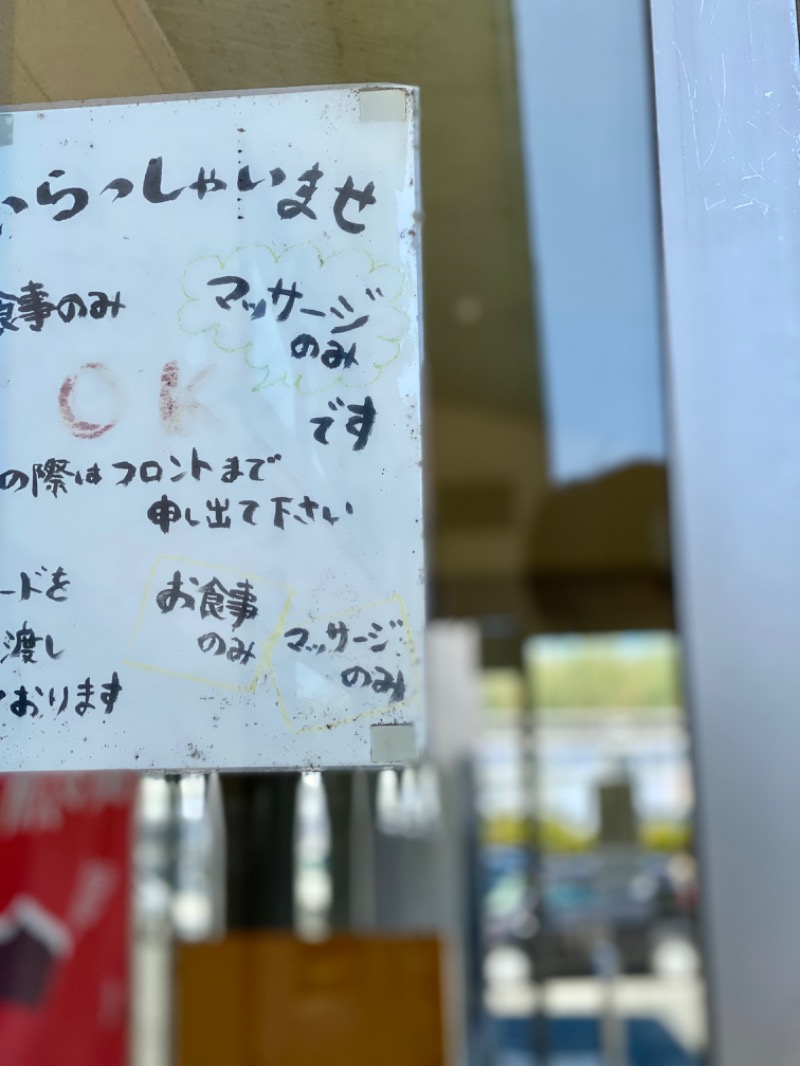 いらっしゃいませ
食事のみ
マッサージ
のみ
OK
です
の際はフロントまで
申し出て下さい
ードを
渡し
おります
お食事
のみ
マッサージ
のみ